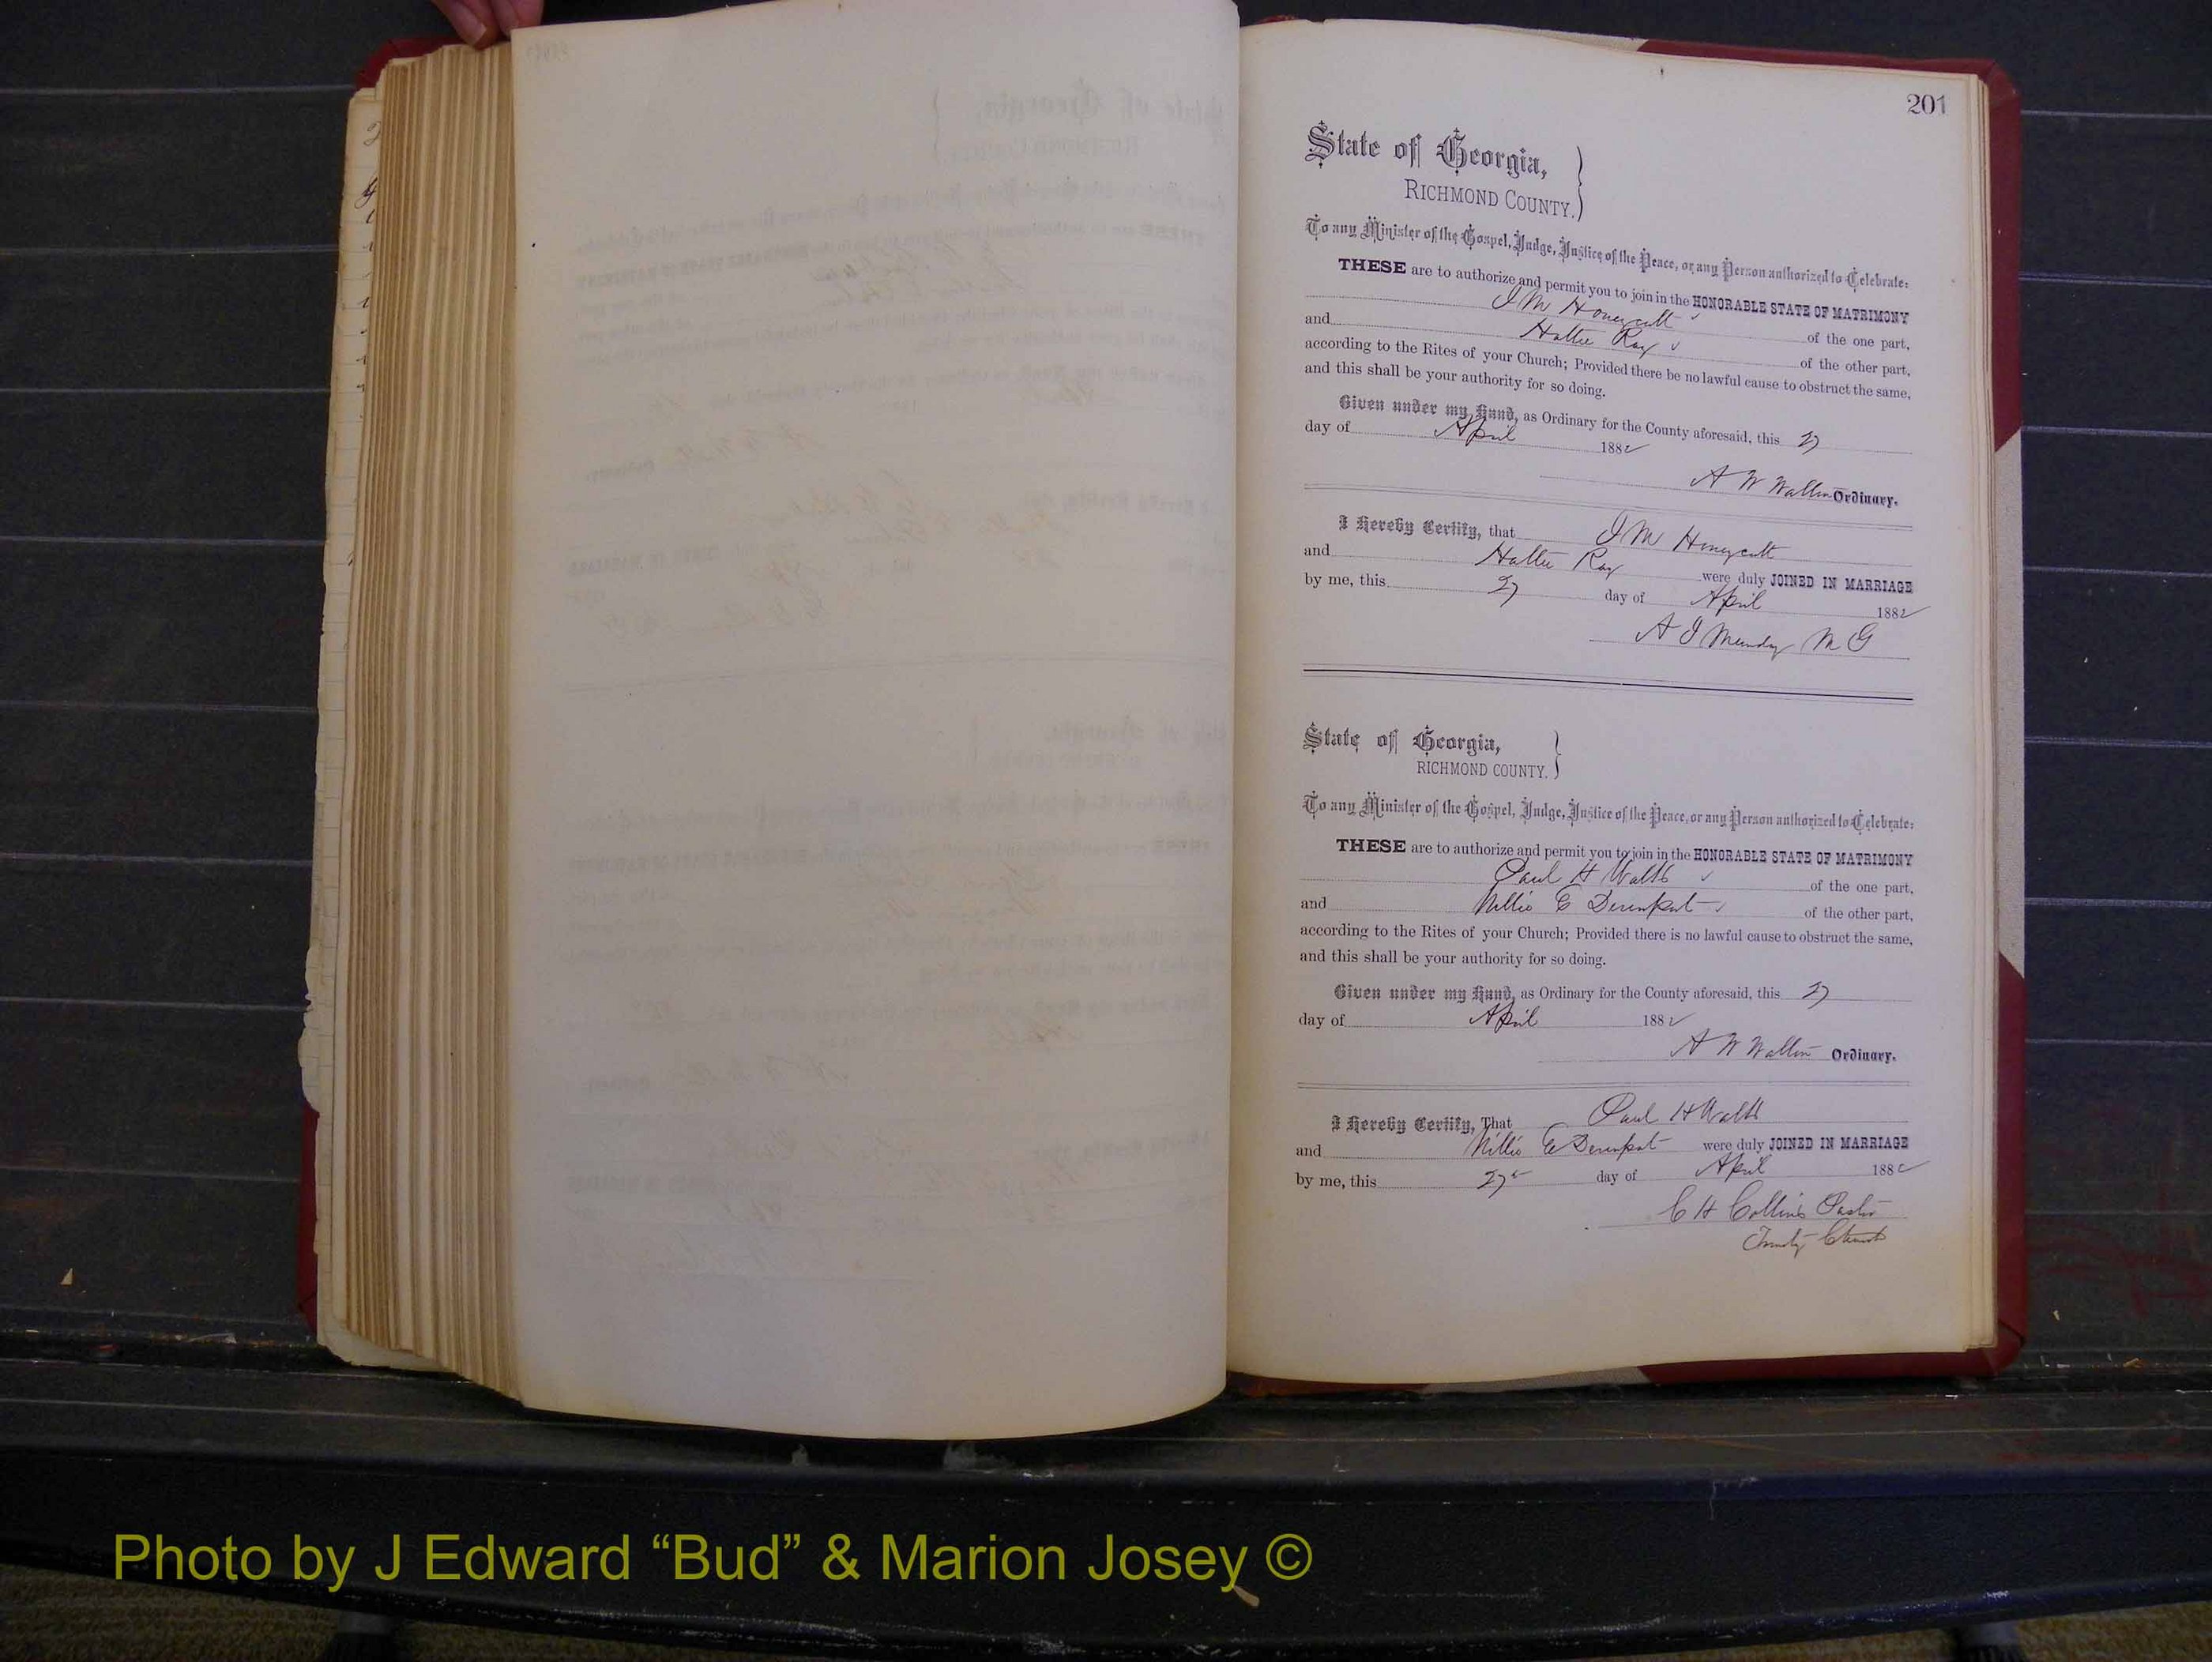 201
State of Georgia,
RICHMOND COUNTY.
To any Minister of the Gospel, Judge, Justice of the Peace, or any Person authorized to Celebrate:
THESE are to authorize and permit you to join in the HONORABLE STATE OF MATRIMONY
J M Honeycutt of the one part,
and Hattie Ray of the other part,
according to the Rites of your Church; Provided there be no lawful cause to obstruct the same,
and this shall be your authority for so doing.
Given under my Hand, as Ordinary for the County aforesaid, this 27
day of April 1882
A W Walton Ordinary.
I Hereby Certify, that J M Honeycutt
and Hattie Ray were duly JOINED IN MARRIAGE
by me, this 27 day of April 1882
A J M G
State of Georgia,
RICHMOND COUNTY.
To any Minister of the Gospel, Judge, Justice of the Peace, or any Person authorized to Celebrate:
THESE are to authorize and permit you to join in the HONORABLE STATE OF MATRIMONY
Paul H of the one part,
and E of the other part,
according to the Rites of your Church; Provided there is no lawful cause to obstruct the same,
and this shall be your authority for so doing.
Given under my Hand, as Ordinary for the County aforesaid, this 27
day of April 1882
A W Walton Ordinary.
I Hereby Certify, That Paul H
and E were duly JOINED IN MARRIAGE
by me, this 27 day of April 1882
C H Collins Pastor
Trinity Church
Photo by J Edward “Bud” & Marion Josey ©